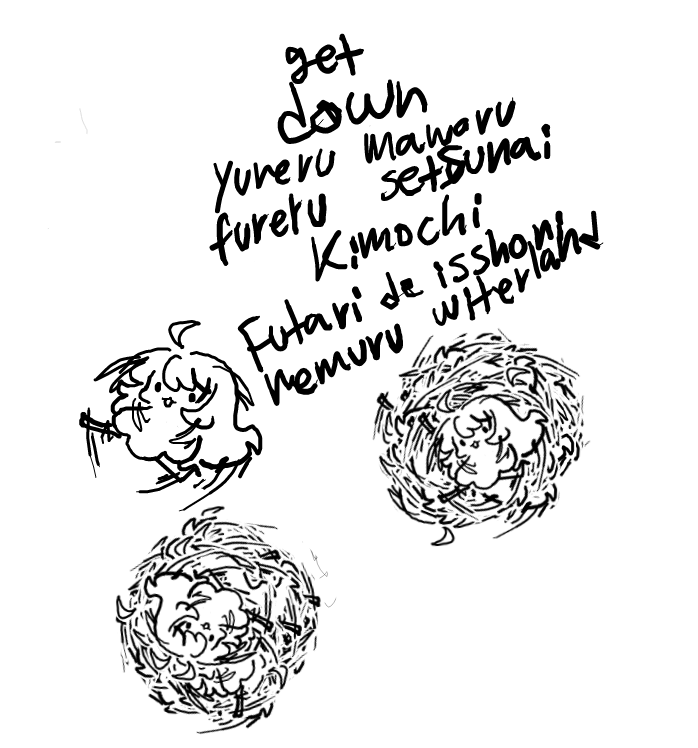 get
down
yureru mawaru
fureru setsunai
kimochi
Futari de isshoni
nemuru witerland